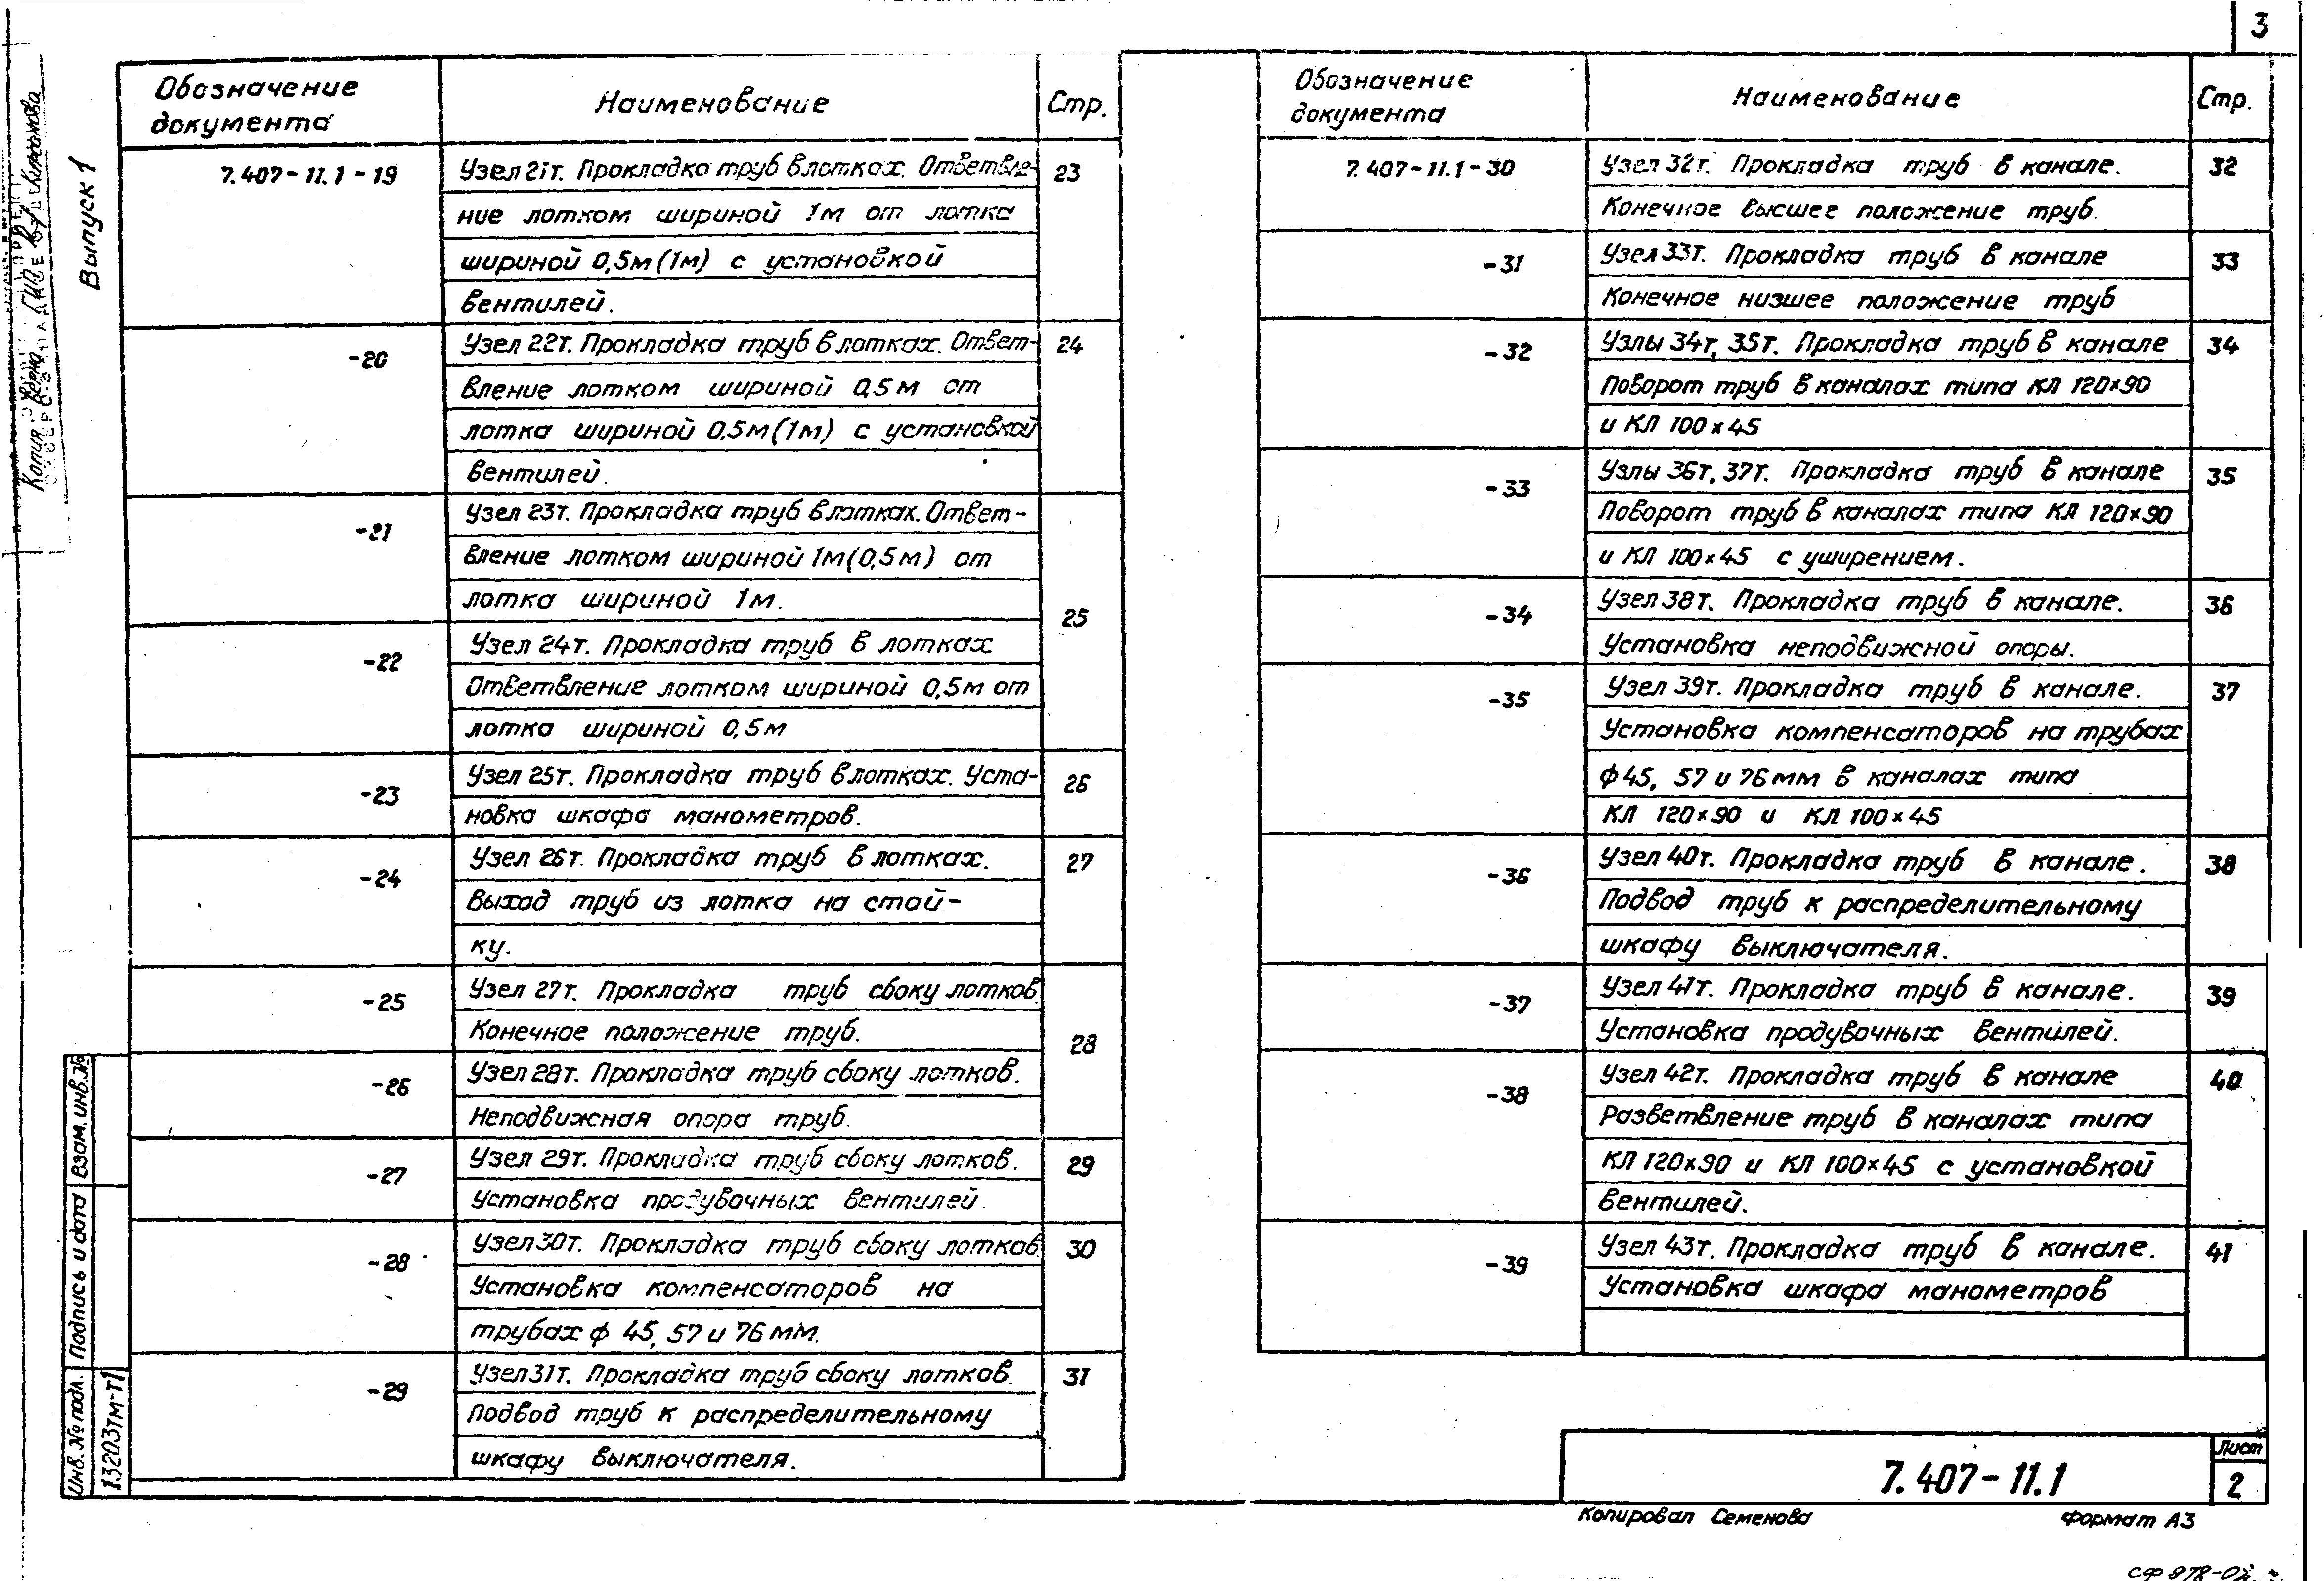 3
Выпуск 1
Обозначение документа
Наименование
Стр.
7.407-11.1-19
Узел 21т. Прокладка труб в лотках. Ответвле-
23
ние лотком шириной 1м от лотка
шириной 0,5м (1м) с установкой
вентилей.
-20
Узел 22т. Прокладка труб в лотках. Ответ-
24
вление лотком шириной 0,5м от
лотка шириной 0,5м (1м) с установкой
вентилей.
-21
Узел 23т. Прокладка труб в лотках. Ответ-
вление лотком шириной 1м (0,5м) от
лотка шириной 1м.
25
-22
Узел 24т. Прокладка труб в лотках
Ответвление лотком шириной 0,5м от
лотка шириной 0,5м
-23
Узел 25т. Прокладка труб в лотках. Уста-
26
новка шкафа манометров.
-24
Узел 26т. Прокладка труб в лотках.
27
Выход труб из лотка на стой-
ку.
-25
Узел 27т. Прокладка труб сбоку лотков.
Конечное положение труб.
28
-26
Узел 28т. Прокладка труб сбоку лотков.
Неподвижная опора труб.
-27
Узел 29т. Прокладка труб сбоку лотков.
29
Установка продувочных вентилей.
-28
Узел 30т. Прокладка труб сбоку лотков.
30
Установка компенсаторов на
трубах ф 45, 57 и 76 мм.
-29
Узел 31т. Прокладка труб сбоку лотков.
31
Подвод труб к распределительному
шкафу выключателя.
Обозначение документа
Наименование
Стр.
7.407-11.1-30
Узел 32т. Прокладка труб в канале.
32
Конечное высшее положение труб.
-31
Узел 33т. Прокладка труб в канале
33
Конечное низшее положение труб
-32
Узлы 34т, 35т. Прокладка труб в канале
34
Поворот труб в каналах типа КЛ 120×90
и КЛ 100×45
-33
Узлы 36т, 37т. Прокладка труб в канале
35
Поворот труб в каналах типа КЛ 120×90
и КЛ 100×45 с уширением.
-34
Узел 38т. Прокладка труб в канале.
36
Установка неподвижной опоры.
-35
Узел 39т. Прокладка труб в канале.
37
Установка компенсаторов на трубах
ф 45, 57 и 76 мм в каналах типа
КЛ 120×90 и КЛ 100×45
-36
Узел 40т. Прокладка труб в канале.
38
Подвод труб к распределительному
шкафу выключателя.
-37
Узел 41т. Прокладка труб в канале.
39
Установка продувочных вентилей.
-38
Узел 42т. Прокладка труб в канале
40
Разветвление труб в каналах типа
КЛ 120×90 и КЛ 100×45 с установкой
вентилей.
-39
Узел 43т. Прокладка труб в канале.
41
Установка шкафа манометров
Взам. инв. №
Подпись и дата
Инв. № подл.
13203тм-т1
7.407-11.1
Лист
2
Копировал Семенова
Формат А3
Копия верна